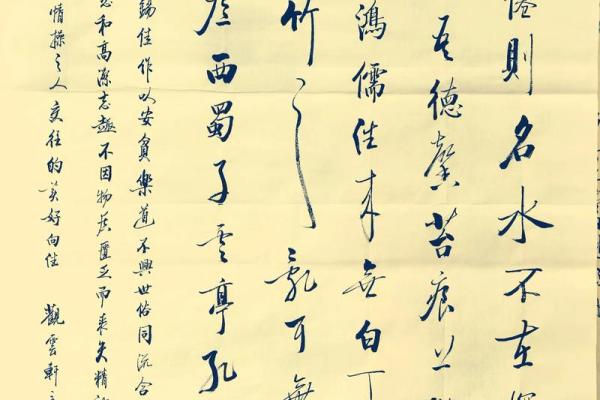 則名水不在深
吾德馨苔痕上
鴻儒往来無白丁
竹之亂耳無
廬西蜀子雲亭孔
錫佳作以安貧樂道不與世俗同流合
和高潔志趣不因物质匱乏而喪失精神
情操之人交往的美好向往 觀雲軒主